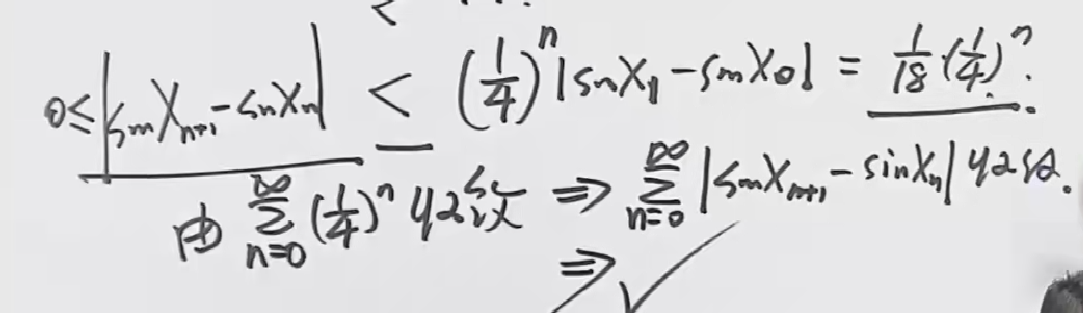 <
0≤|sinX_{n+1}-sinX_n| < (1/4)^n |sinX_1-sinX_0| = 1/18 (1/4)^n.
由 ∑_{n=0}^{∞} (1/4)^n 收敛 ⇒ ∑_{n=0}^{∞} |sinX_{n+1}-sinX_n| 收敛.
⇒ ✓